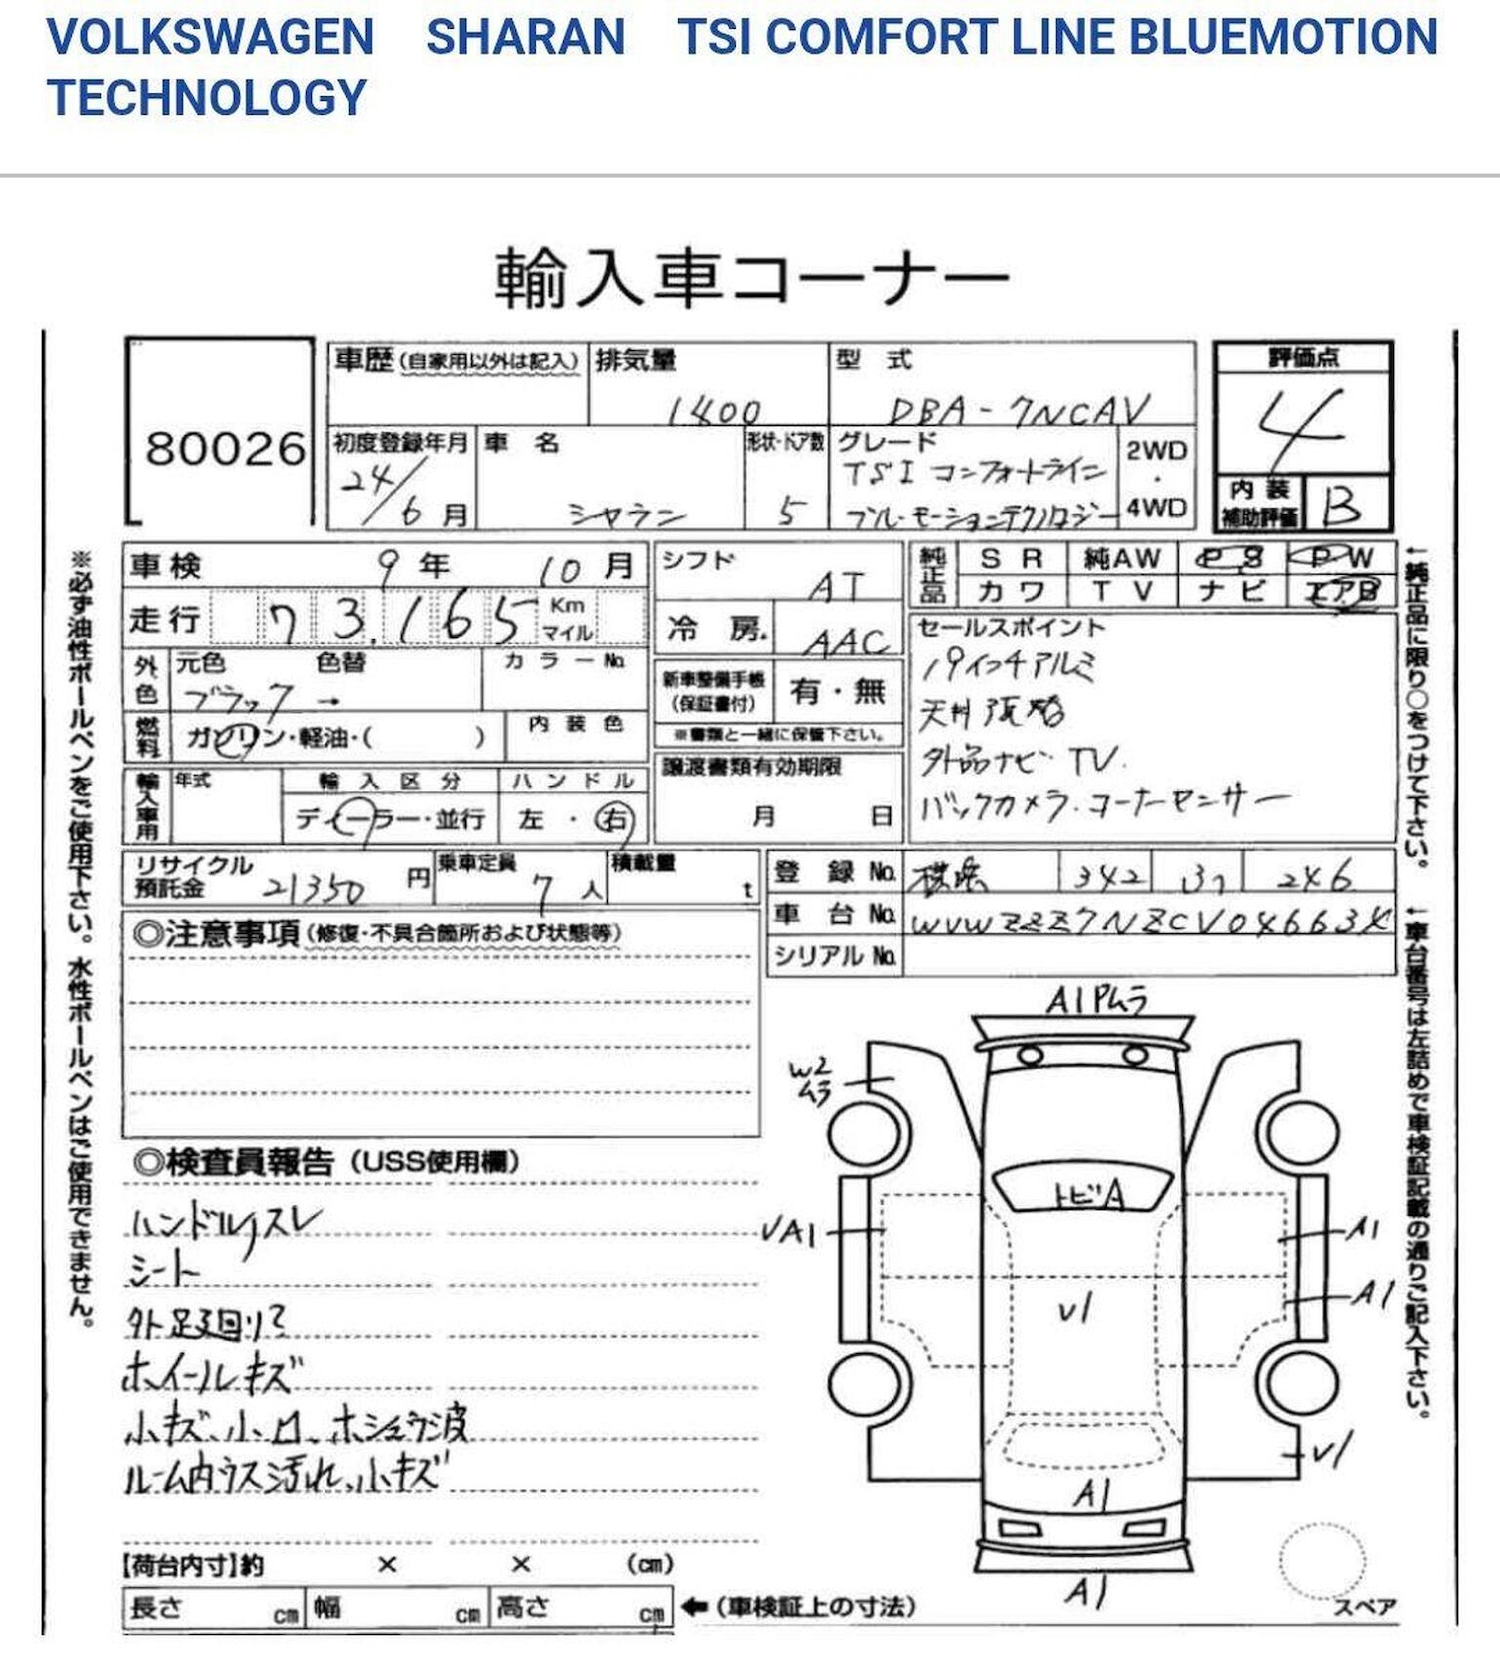 VOLKSWAGEN SHARAN TSI COMFORT LINE BLUEMOTION
TECHNOLOGY
輸入車コーナー
80026
車歴(自家用以外は記入)
排気量
1400
型 式
DBA-7NCAV
評価点
4
初度登録年月
24/6月
車 名
シャラン
形状・ドア数
5
グレード
TSI コンフォートライン
ブルーモーションテクノロジー
2WD
・
4WD
内装
補助評価
B
※必ず油性ボールペンをご使用下さい。水性ボールペンはご使用できません。
車検 9年 10月
走行 73,165 Km マイル
外色
元色 色替
ブラック →
カラーNo.
燃料
ガソリン・軽油・( )
内装色
輸入車用
年式
輸入区分
ディーラー・並行
ハンドル
左・右
シフト
AT
冷房
AAC
新車整備手帳
(保証書付)
有・無
※書類と一緒に保管下さい。
譲渡書類有効期限
月 日
純正品
SR 純AW PS PW
カワ TV ナビ エアB
セールスポイント
アルミ
天井張替
外品ナビ TV.
バックカメラ・コーナーセンサー
←純正品に限り○をつけて下さい。
リサイクル
預託金
21350円
乗車定員
7人
積載量
t
登録No. 横浜 342 246
車台No. WVWZZZ7NZCV046634
シリアルNo.
←車台番号は左詰めで車検証記載の通りご記入下さい。
◎注意事項(修復・不具合箇所および状態等)
◎検査員報告(USS使用欄)
ハンドルスレ
シート
外足廻り
ホイールキズ
小キズ、小凹、ホシュウ済
ルーム内ウス汚れ、小キズ
A1 Pムラ
W2
ムラ
トビA
VA1
A1
A1
V1
V1
A1
A1
スペア
【荷台内寸】約 × × (cm)
長さ cm 幅 cm 高さ cm ←(車検証上の寸法)